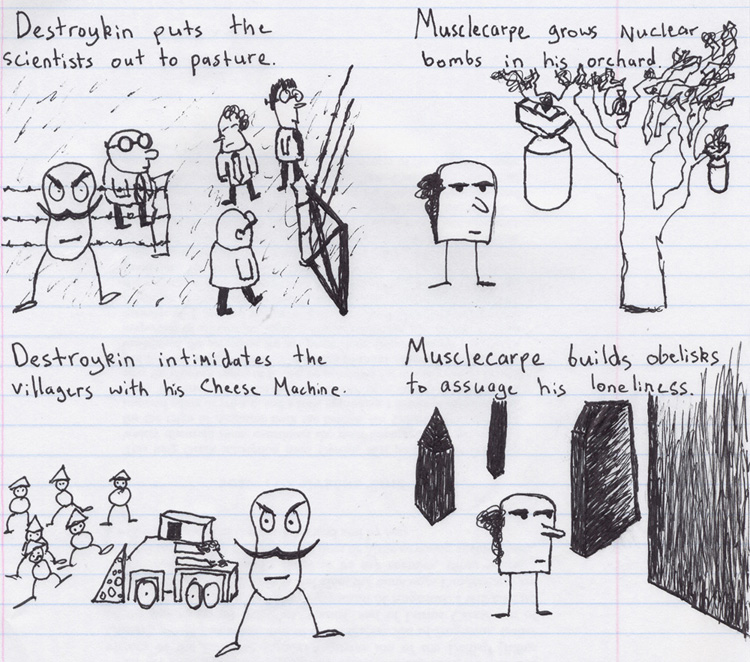 Destroykin puts the
scientists out to pasture.
Musclecarpe grows Nuclear
bombs in his orchard.
Destroykin intimidates the
villagers with his Cheese Machine.
Musclecarpe builds obelisks
to assuage his loneliness.